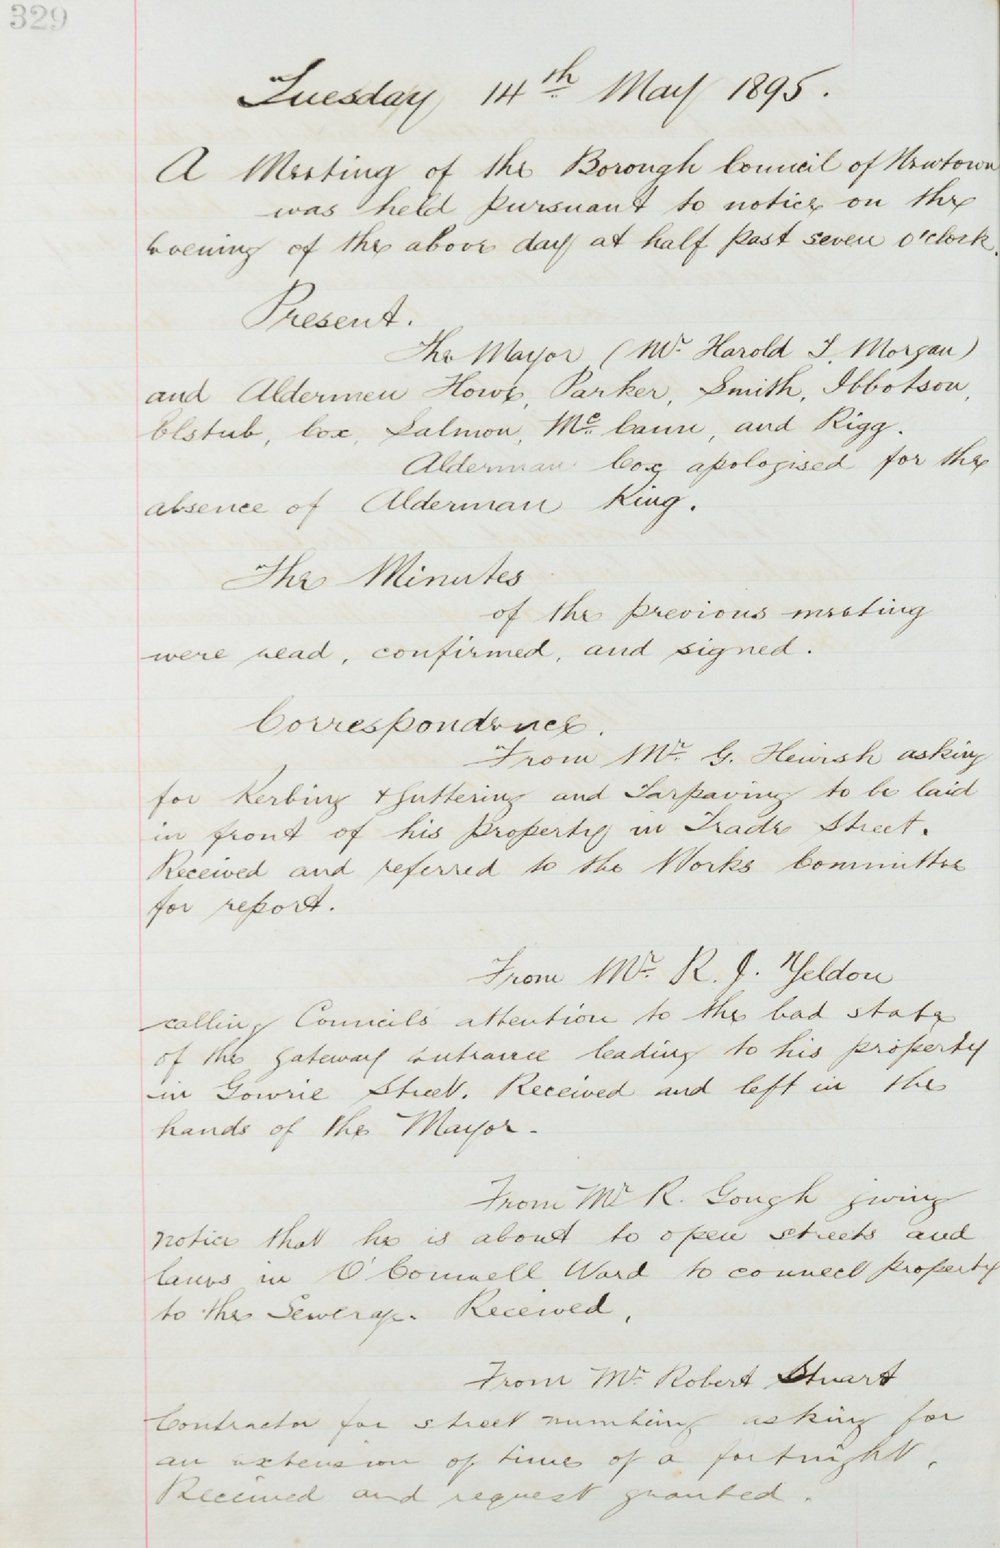 329
Tuesday 14th May 1895.
A Meeting of the Borough Council of Newtown
was held pursuant to notice on the
evening of the above day at half past seven o'clock.
Present.
The Mayor (Mr. Harold T. Morgan)
and Aldermen Howe, Parker, Smith, Ibbotson,
Elstub, Cox, Salmon, McCann, and Rigg.
Alderman Cox apologised for the
absence of Alderman King.
The Minutes
of the previous meeting
were read, confirmed, and signed.
Correspondence.
From Mr. G. Heirsh asking
for Kerbing & Guttering and Tarpaving to be laid
in front of his property in Trade Street.
Received and referred to the Works Committee
for report.
From Mr. R. J. Yeldon
calling Councils attention to the bad state
of the gateway entrance leading to his property
in Gowrie Street. Received and left in the
hands of the Mayor.
From Mr R. Gough giving
notice that he is about to open streets and
lanes in O'Connell Ward to connect property
to the Sewerage. Received.
From Mr. Robert Stuart
Contractor for street numbering asking for
an extension of time of a fortnight.
Received and request granted.